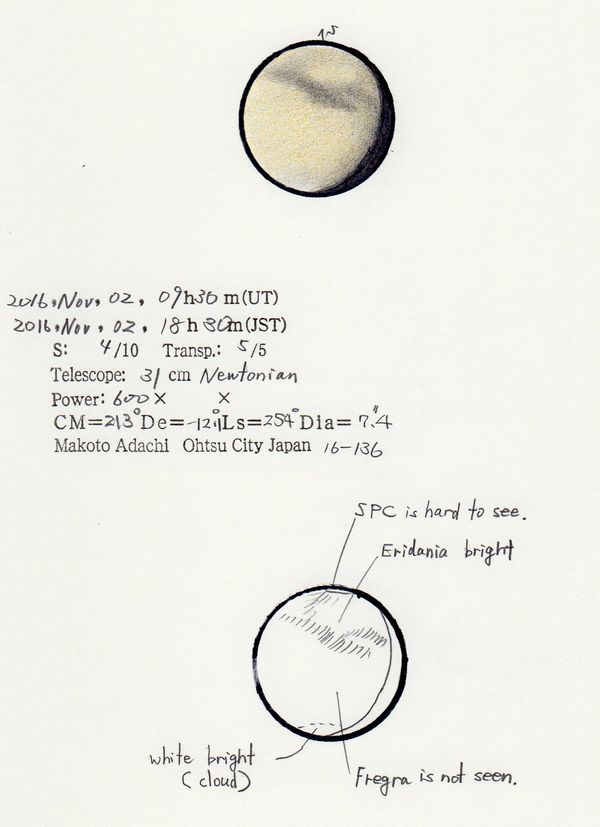 S
2016, Nov, 02, 09h30m(UT)
2016, Nov, 02, 18h30m(JST)
S: 4/10 Transp.: 5/5
Telescope: 31 cm Newtonian
Power: 600× ×
CM=213° De=-12.1 Ls=254° Dia=7.4"
Makoto Adachi Ohtsu City Japan 16-136
SPC is hard to see.
Eridania bright
white bright
(cloud)
Fregra is not seen.